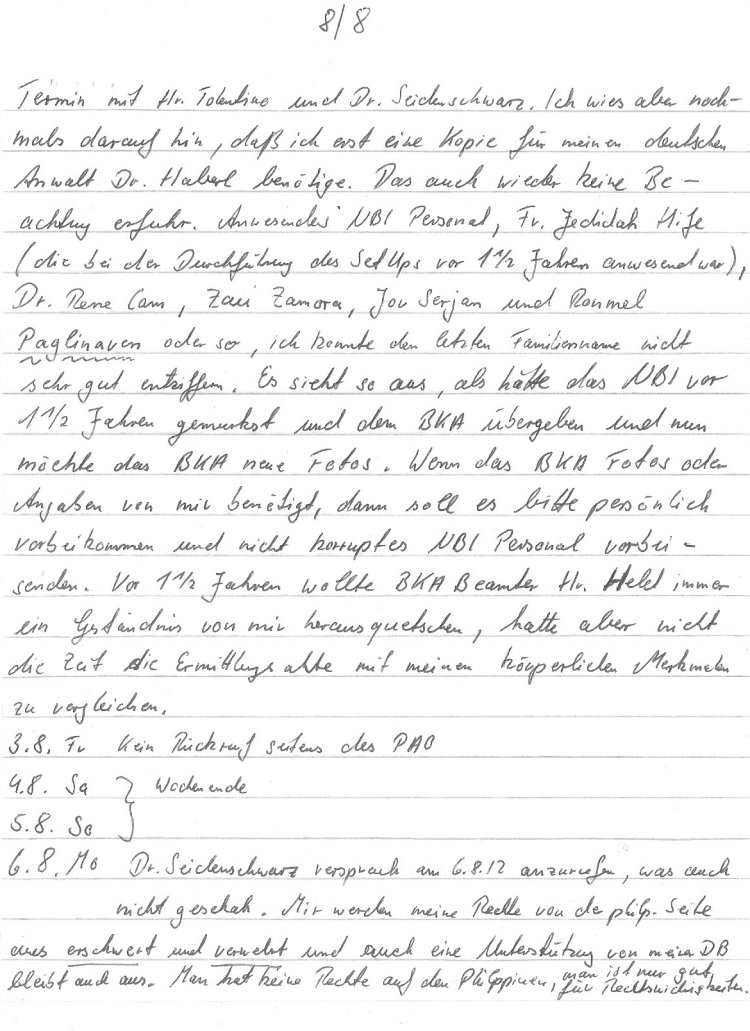 8/8
Termin mit Hr. Tolentino und Dr. Seidenschwarz. Ich wies aber noch-
mals darauf hin, daß ich erst eine Kopie für meinen deutschen
Anwalt Dr. Haberl benötige. Das auch wieder keine Be-
achtung erfuhr. Anwesendes NBI Personal, Fr. Jedidah Hife
(die bei der Durchführung des SetUps vor 1 1/2 Jahren anwesend war),
Dr. Rene Cam, Zari Zamora, Jov Serjan und Rommel
Paglinaven oder so, ich konnte den letzten Familienname nicht
sehr gut entziffern. Es sieht so aus, als hätte das NBI vor
1 1/2 Jahren gemurkst und dem BKA übergeben und nun
möchte das BKA neue Fotos. Wenn das BKA Fotos oder
Angaben von mir benötigt, dann soll es bitte persönlich
vorbeikommen und nicht korruptes NBI Personal vorbei-
senden. Vor 1 1/2 Jahren wollte BKA Beamter Hr. Held immer
ein Geständnis von mir herausquetschen, hatte aber nicht
die Zeit die Ermittlungsakte mit meinen körperlichen Merkmalen
zu vergleichen.
3.8. Fr Kein Rückruf seitens des PAO
4.8. Sa } Wochenende
5.8. So
6.8. Mo Dr. Seidenschwarz versprach am 6.8.12 anzurufen, was auch
nicht geschah. Mir werden meine Rechte von der philp. Seite
aus erschwert und verwehrt und auch eine Unterstützung von meiner DB
bleibt auch aus. Man hat keine Rechte auf den Philippinen, man ist nur gut
für Rechtswidrigkeiten.